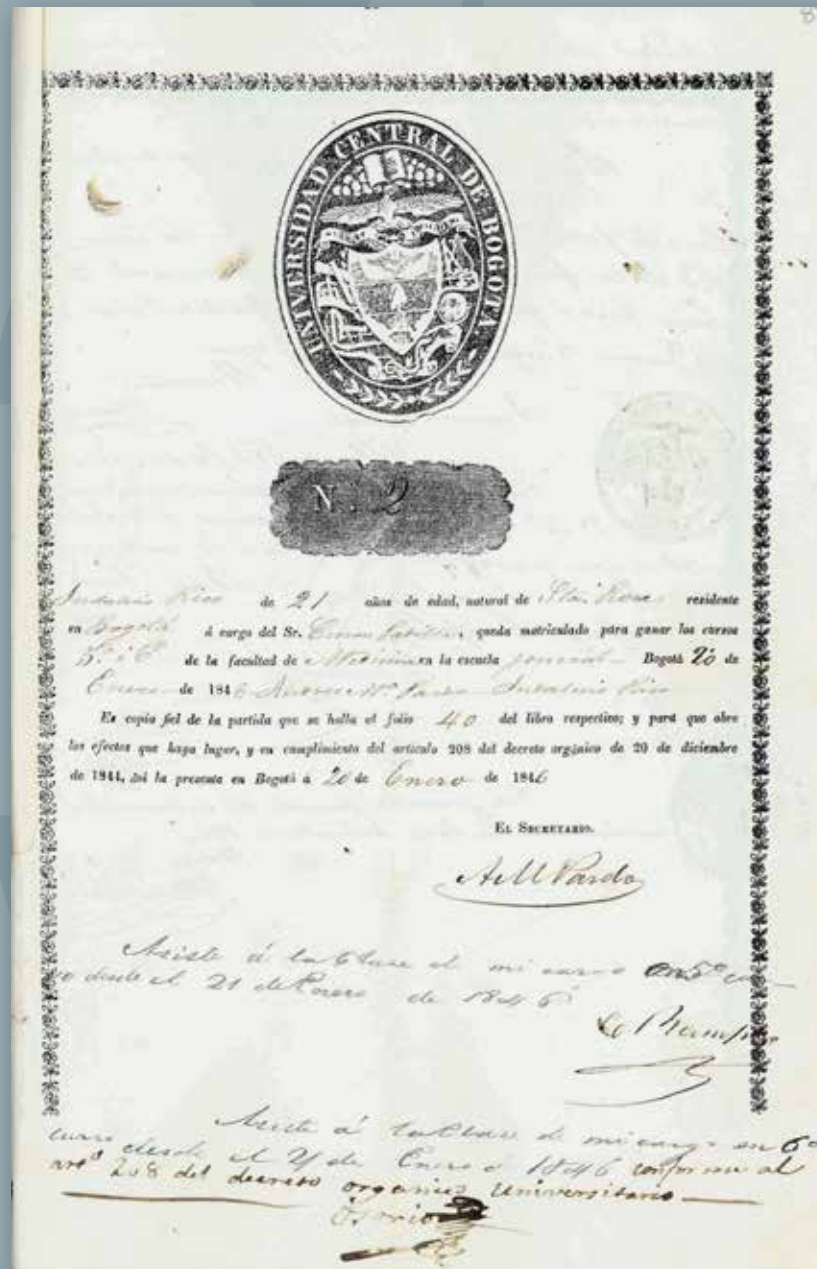 8
UNIVERSIDAD CENTRAL DE BOGOTA
N. 2
Rico de 21 años de edad, natural de Sta. Rosa residente
en Bogotá á cargo del Sr. queda matriculado para ganar los cursos
5.º i 6.º de la facultad de Medicina en la escuela Bogotá 20 de
Enero de 1846 Rico
Es copia fiel de la partida que se halla al folio 40 del libro respectivo; y para que obre
los efectos que haya lugar, y en cumplimiento del artículo 208 del decreto orgánico de 20 de diciembre
de 1844, doi la presente en Bogotá á 20 de Enero de 1846
EL SECRETARIO.
A M Pardo
Asiste á la Clase de mi cargo en 5º
desde el 21 de Enero de 1846
Asiste á la Clase de mi cargo en 6º
curso desde el 21 de Enero 1846 conforme al
artº 208 del decreto organico universitario
Osorio